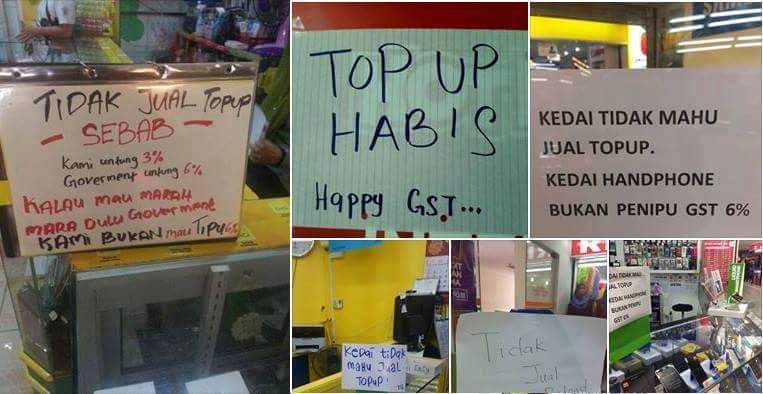 TIDAK JUAL TOPUP
- SEBAB -
Kami untung 3%
Goverment untung 6%
KALAU MAU MARAH
MARA DULU GOVERMENT
KAMI BUKAN mau TIPU
TOP UP
HABIS
Happy GST...
KEDAI TIDAK MAHU
JUAL TOPUP.
KEDAI HANDPHONE
BUKAN PENIPU GST 6%
Kedai tidak
mahu Jual
Topup!
Tidak
Jual
DAI TIDAK MAU
AL TOPUP
KEDAI HANDPHONE
BUKAN PENIPU
GST 6%